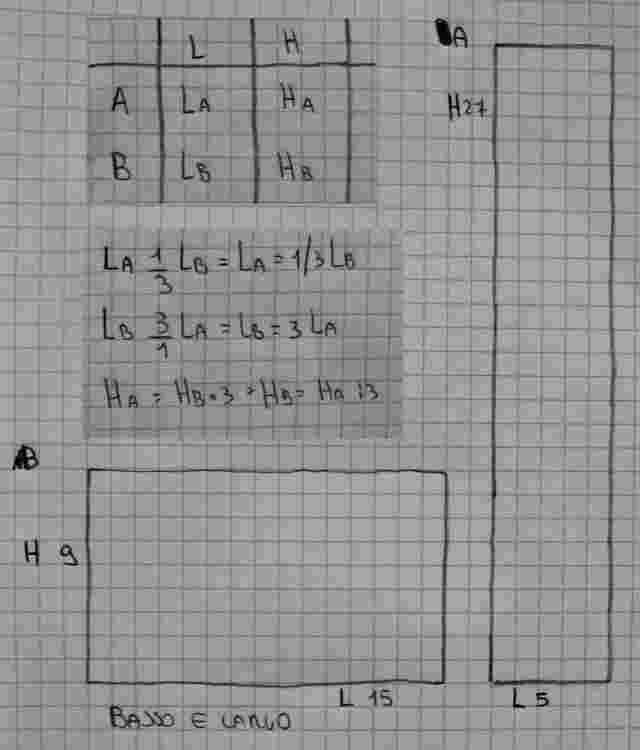 L H
A LA HA
B LB HB
LA 1/3 LB = LA = 1/3 LB
LB 3/1 LA = LB = 3 LA
HA = HB • 3 + HB = HA : 3
A
H27
L 5
B
H 9
L 15
BASSO E LARGO